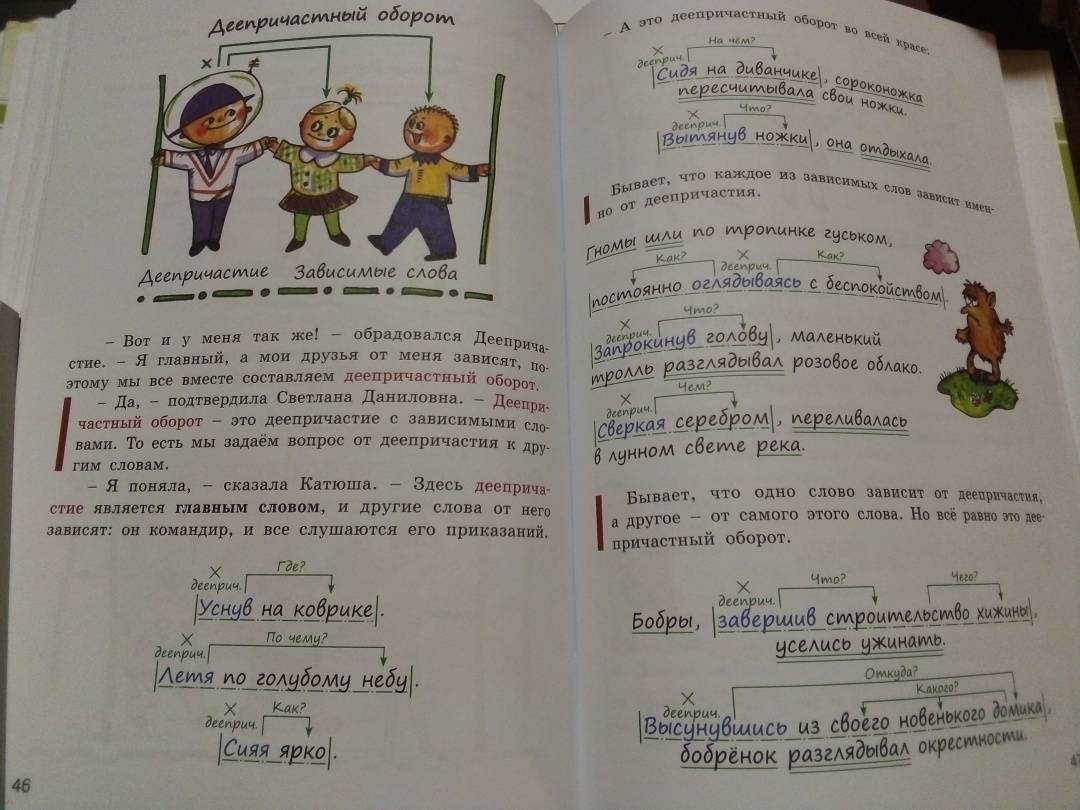 Деепричастный оборот
×
≠
Деепричастие Зависимые слова
– Вот и у меня так же! – обрадовался Дееприча-
стие. – Я главный, а мои друзья от меня зависят, по-
этому мы все вместе составляем деепричастный оборот.
– Да, – подтвердила Светлана Даниловна. – Деепри-
частный оборот – это деепричастие с зависимыми сло-
вами. То есть мы задаём вопрос от деепричастия к дру-
гим словам.
– Я поняла, – сказала Катюша. – Здесь дееприча-
стие является главным словом, и другие слова от него
зависят: он командир, и все слушаются его приказаний.
× Где?
дееприч.
|Уснув на коврике|.
× По чему?
дееприч.
|Летя по голубому небу|.
× Как?
дееприч.
|Сияя ярко|.
46
– А это деепричастный оборот во всей красе:
× На чём?
дееприч.
|Сидя на диванчике|, сороконожка
пересчитывала свои ножки.
× Что?
дееприч.
|Вытянув ножки|, она отдыхала.
Бывает, что каждое из зависимых слов зависит имен-
но от деепричастия.
Гномы шли по тропинке гуськом,
Как? × дееприч. Как?
|постоянно оглядываясь с беспокойством|.
× Что?
дееприч.
|Запрокинув голову|, маленький
тролль разглядывал розовое облако.
× Чем?
дееприч.
|Сверкая серебром|, переливалась
в лунном свете река.
Бывает, что одно слово зависит от деепричастия,
а другое – от самого этого слова. Но всё равно это дее-
причастный оборот.
× Что? Чего?
дееприч.
Бобры, |завершив строительство хижины|,
уселись ужинать.
Откуда?
× Какого?
дееприч.
|Высунувшись из своего новенького домика|,
бобрёнок разглядывал окрестности.